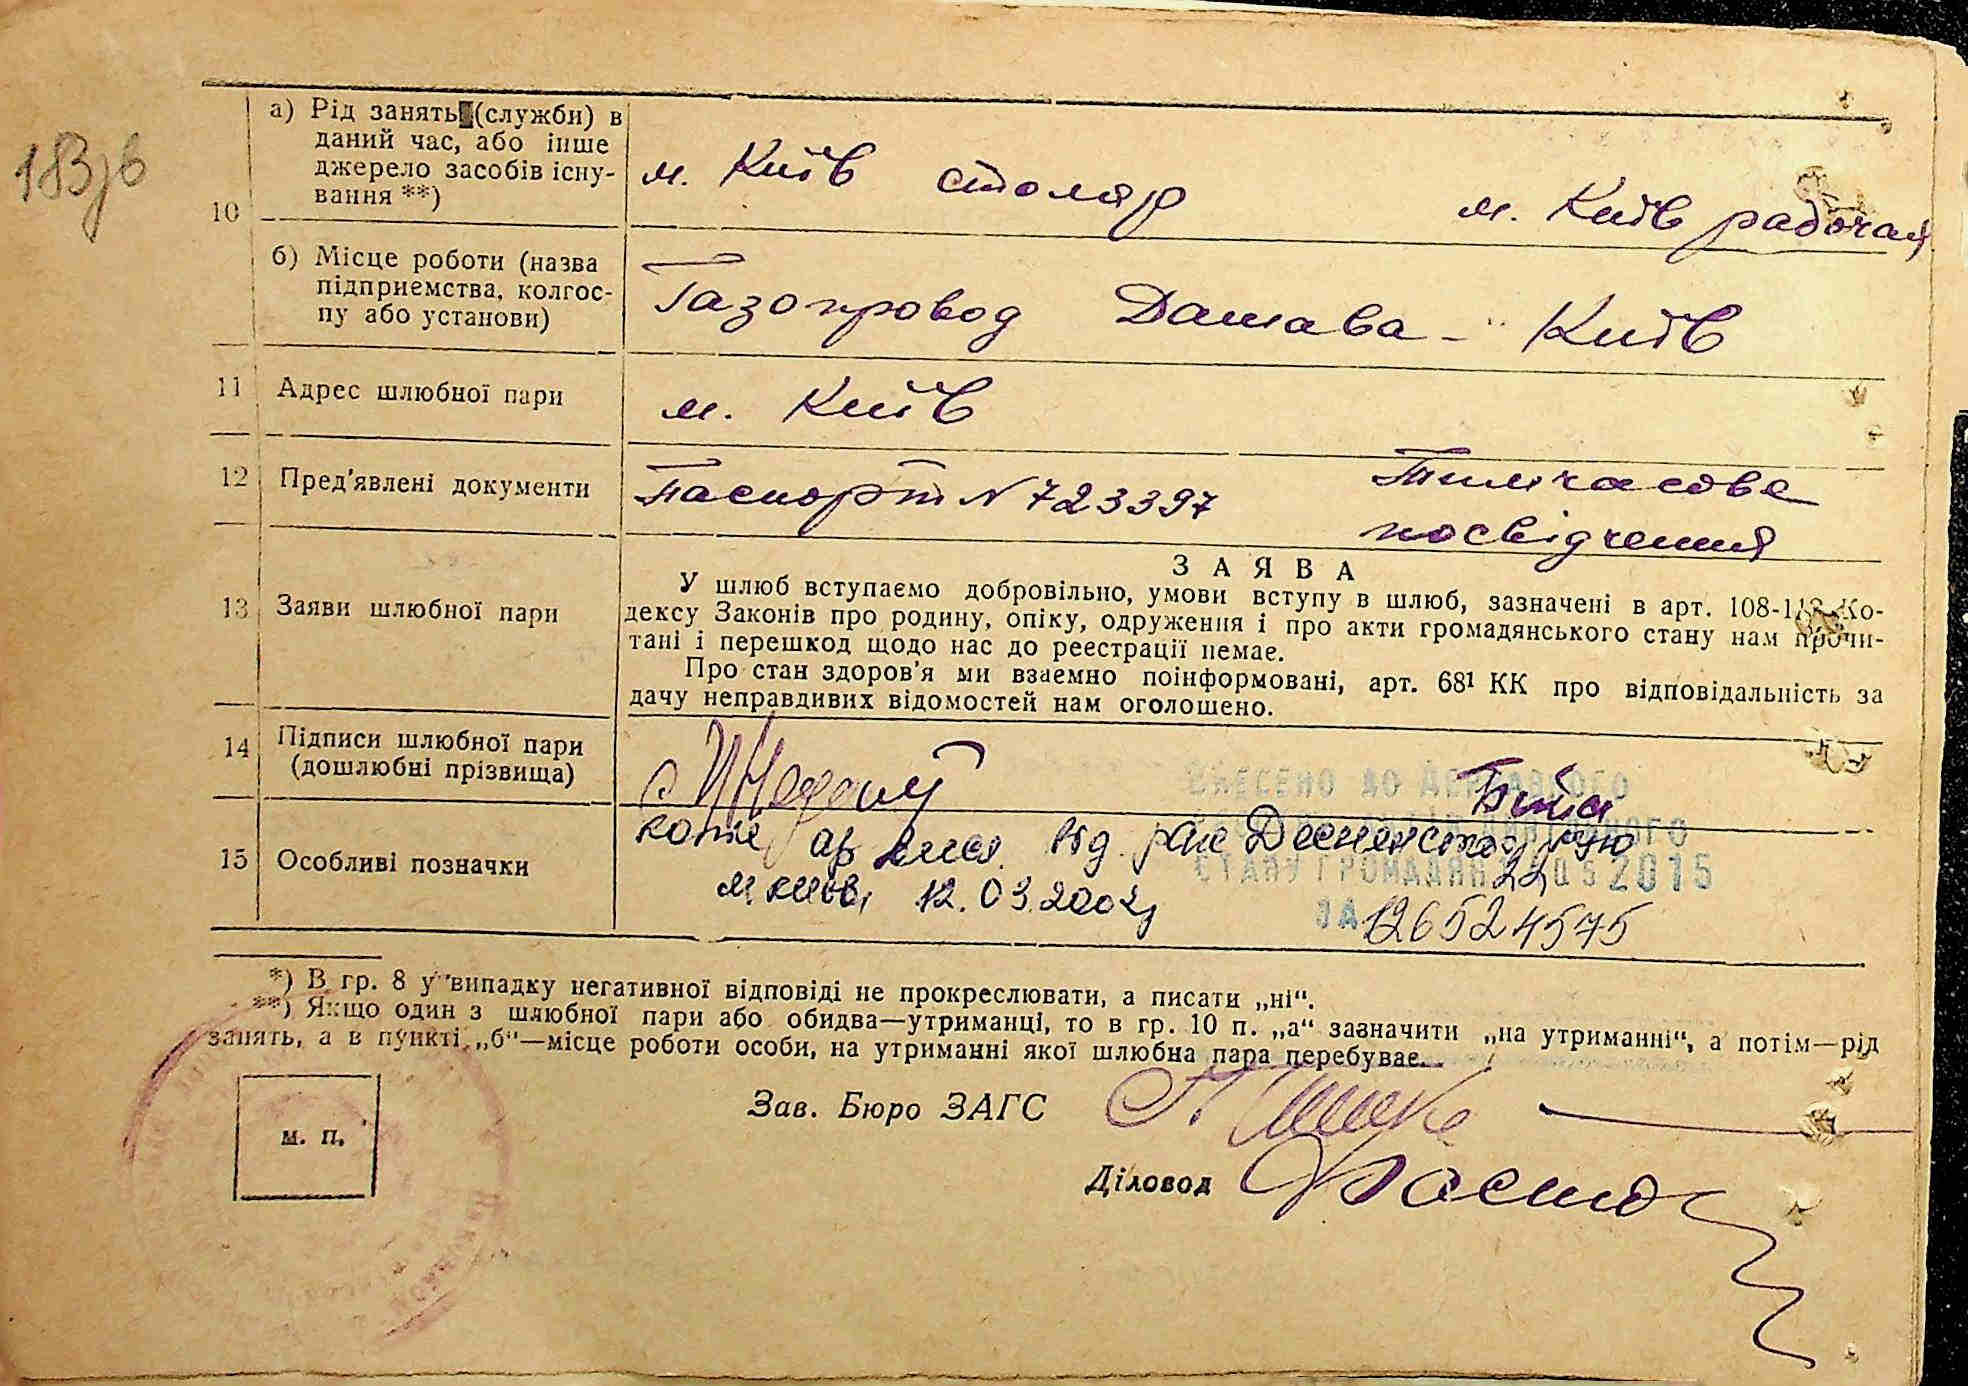 183зв
10
а) Рід занять (служби) в
даний час, або інше
джерело засобів існу-
вання **)
м. Київ столяр
м. Київ рабочая
б) Місце роботи (назва
підприємства, колгос-
пу або установи)
Газопровод Дашава - Київ
11 Адрес шлюбної пари
м. Київ
12 Пред'явлені документи
Паспорт N 723397
Тимчасове
посвідчення
13 Заяви шлюбної пари
ЗАЯВА
У шлюб вступаємо добровільно, умови вступу в шлюб, зазначені в арт. Ко-
дексу Законів про родину, опіку, одруження і про акти громадянського стану нам прочи-
тані і перешкод щодо нас до реестрації немає.
Про стан здоров'я ми взаємно поінформовані, арт. 68¹ КК про відповідальність за
дачу неправдивих відомостей нам оголошено.
14 Підписи шлюбної пари
(дошлюбні прізвища)
15 Особливі позначки
від
м. Київ, 12.03.2002
ВНЕСЕНО ДО ДЕРЖАВНОГО
СТАНУ ГРОМАДЯН 22 05 2015
ЗА 126524575
*) В гр. 8 у випадку негативної відповіді не прокреслювати, а писати „ні“.
**) Якщо один з шлюбної пари або обидва—утриманці, то в гр. 10 п. „а“ зазначити „на утриманні“, а потім—рід
занять, а в пункті „б“—місце роботи особи, на утриманні якої шлюбна пара перебуває.
Зав. Бюро ЗАГС
м. п.
Діловод